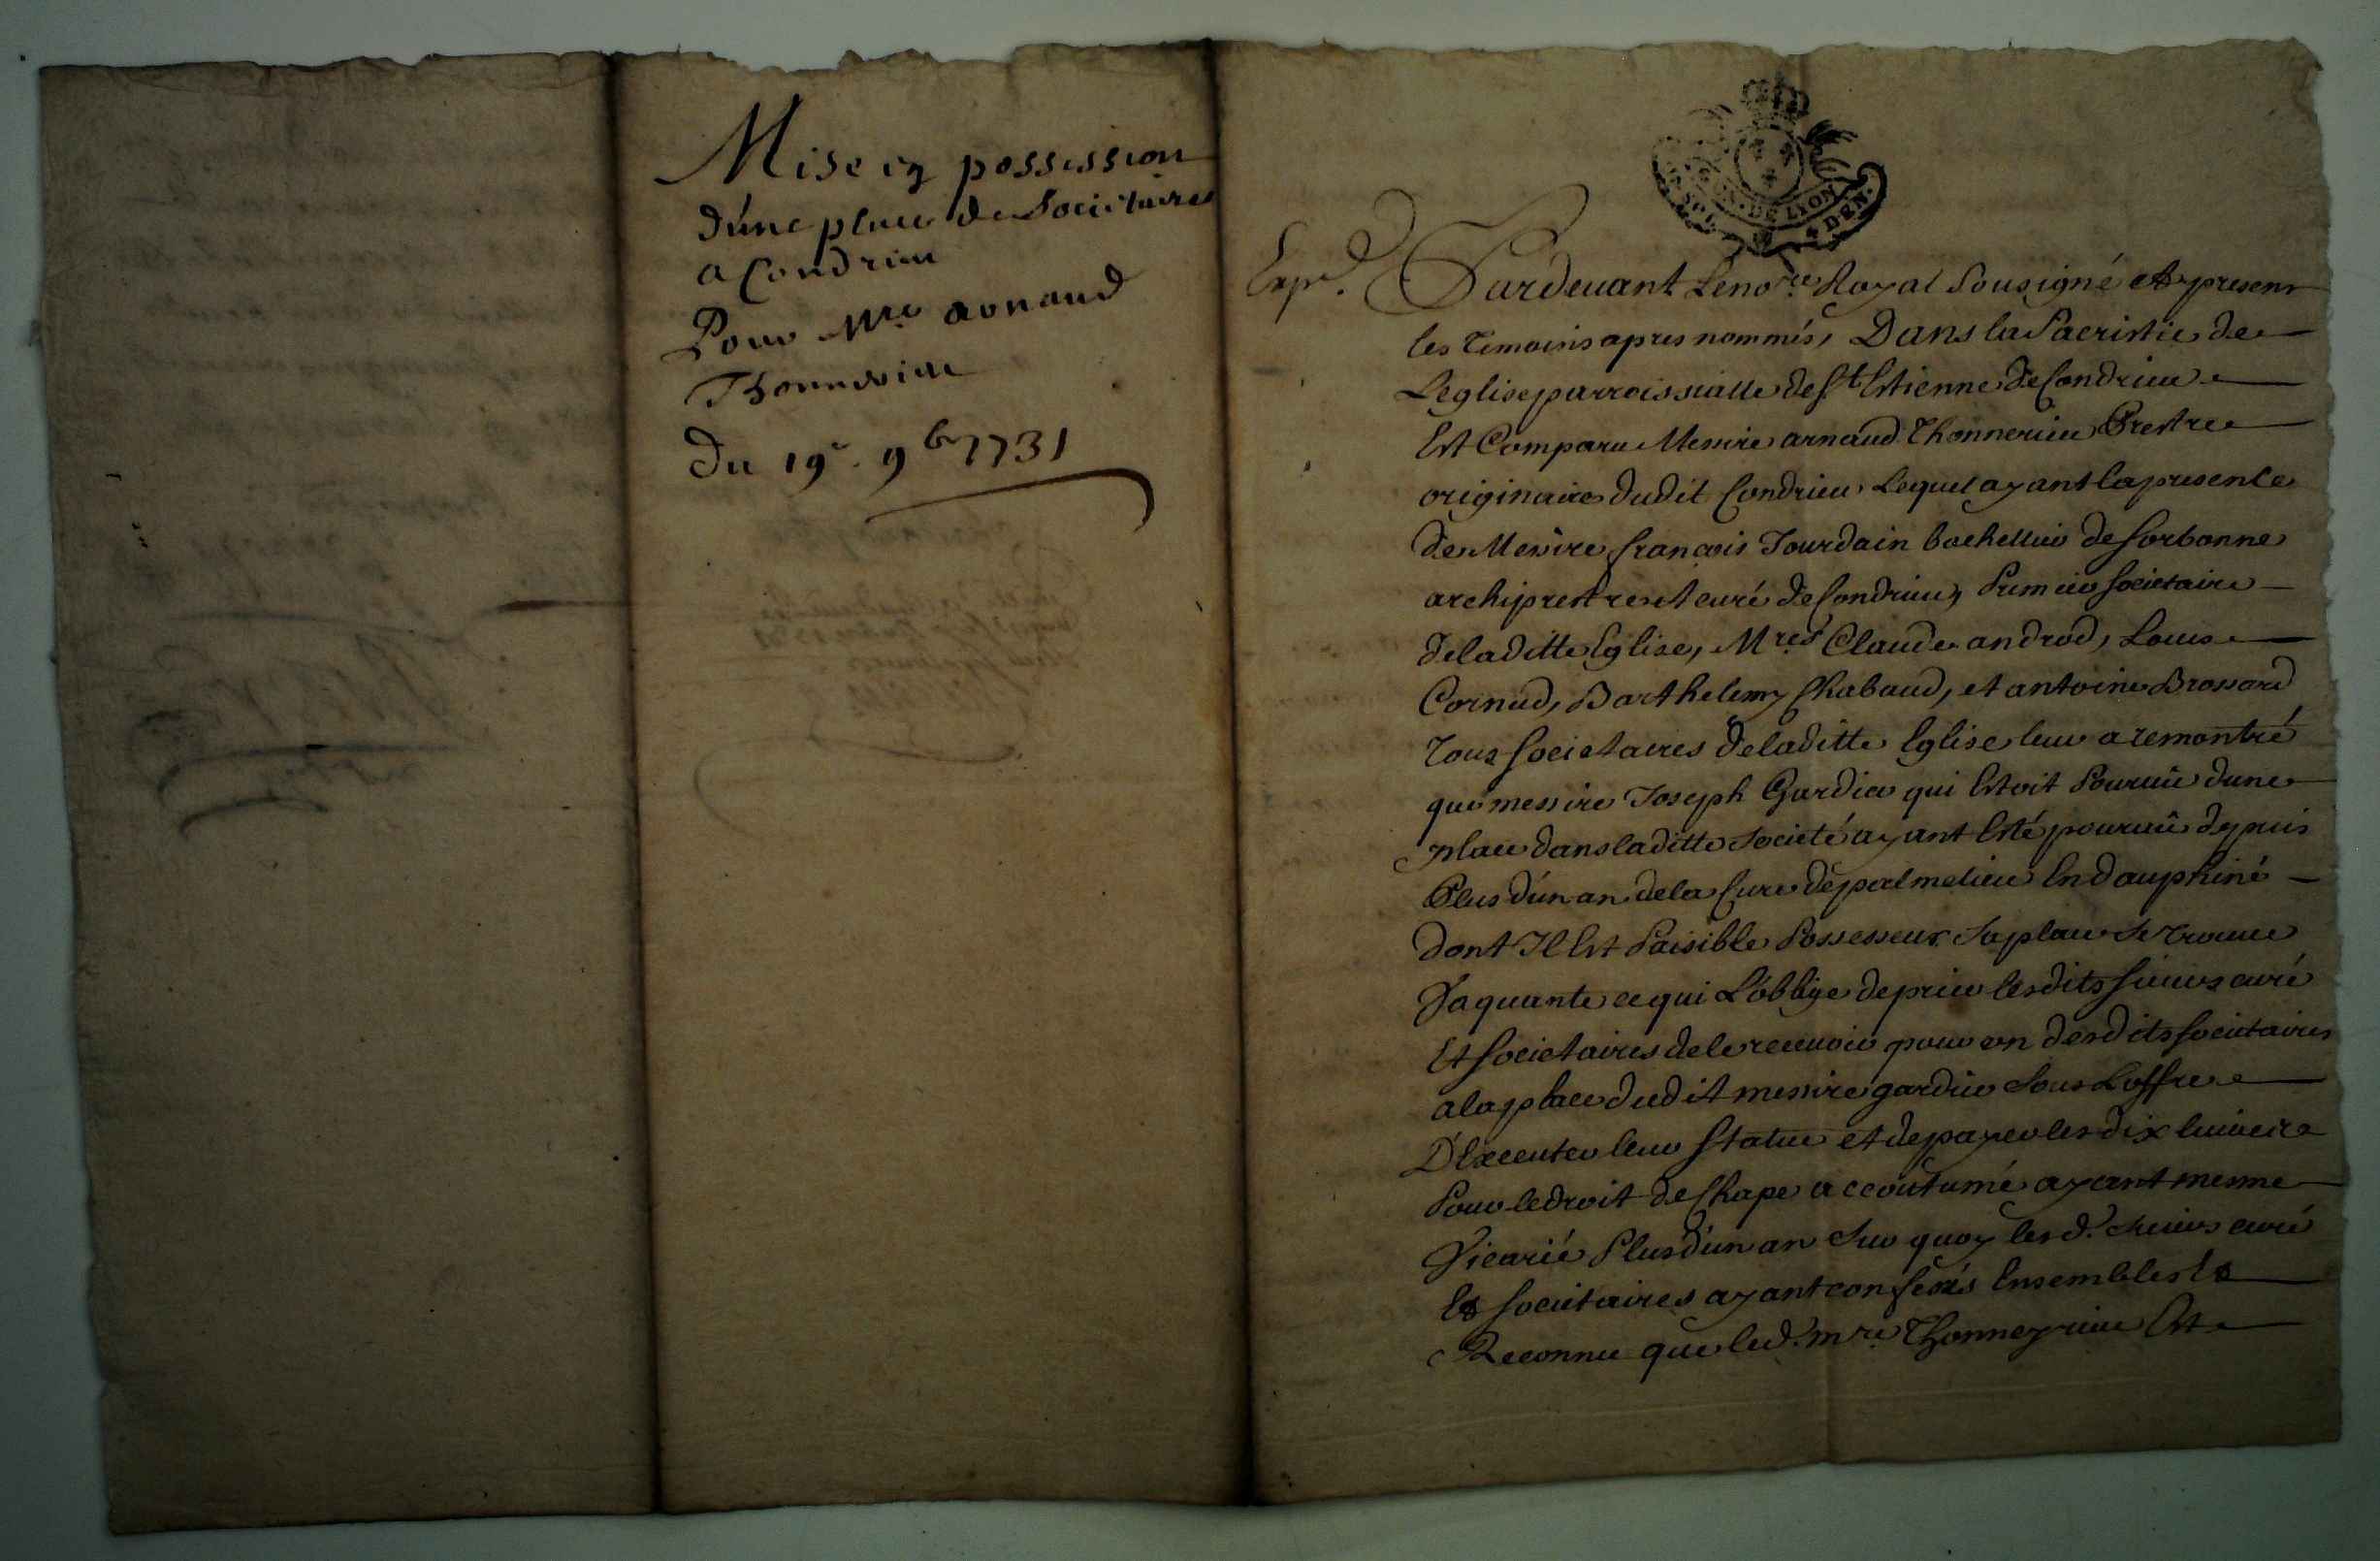 Mise en possession
d'une place de Societaires
a Condrieu
Pour Mre arnaud
Thonnerieu
Du 19e 9b 1731
GEN. DE LYON
DEN.
Exp.d
Pardevant Le nore Royal Sousigné et presens
les Temoins apres nommés, Dans la Sacristie de
L'eglise parroissialle de St Estienne de Condrieu
Est Comparu Messire arnaud Thonnerieu Prestre
originaire dudit Condrieu Lequel ayant la presence
de Messire françois Jourdain bachellier de Sorbonne
archiprestre et curé de Condrieu, Premier Societaire
de laditte Eglise, Mres Claude androd, Louis
Cornud, Barthelemy Chabaud, et antoine Brossard
Tous Societaires de laditte Eglise leur a remontré
que messire Joseph Gardier qui Estoit Pourvû dune
place dans laditte Societé ayant Esté pourvû depuis
Plus d'un an de la Cure de palmelieu En dauphiné
dont Il Est Paisible Possesseur Sa place Se trouve
Vaquante ce qui L'obblige de prier lesdits Sieurs curé
Et Societaires de le recevoir pour un desdits Societaires
a la place dudit messire gardier Sous Loffre
D'Executer leur Statue et de payer les dix livres
Pour le droit de Chape accoutumé ayant mesme
Vicarié Plus d'un an Sur quoy les d. Sieurs curé
Et Societaires ayant conferés Ensembles Et
Reconnu que led. mre Thonneyrieu Est